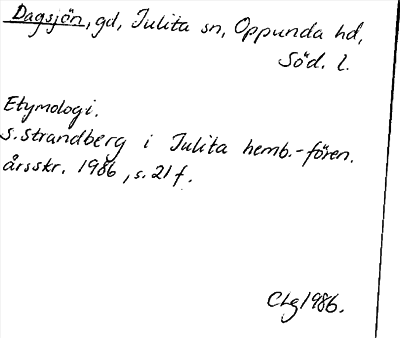 Dagsjön, gd, Julita sn, Oppunda hd,
Söd. l.
Etymologi.
S. Strandberg i Julita hemb.-fören.
årsskr. 1986, s. 21 f.
CLg 1986.